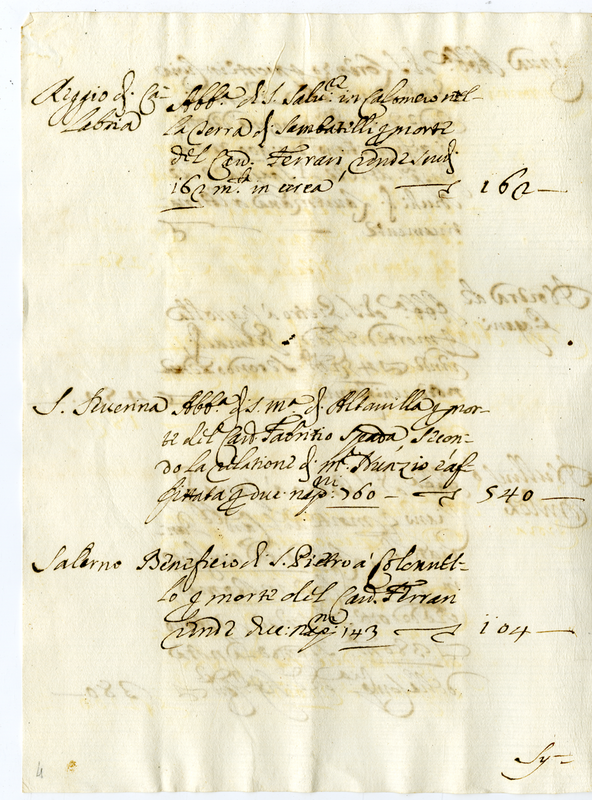 Reggio di Ca- Abb.a di S. Salv.re in Calomeno nel-
labria la Terra di Sambatelli p morte
del Card. Ferrari rende scudi
162 m.ta in circa 162
S. Severina Abb.a di S. M.a di Altavilla p mor-
te del Card. Fabritio Spada, Secon-
do la relatione di m.r Nunzio è af-
fittata p duc: nap:ni 760 540
Salerno Beneficio di S. Pietro à Colonnel-
lo p morte del Card. Ferrari
rende duc: nap:ni 143 104
Sy-
4